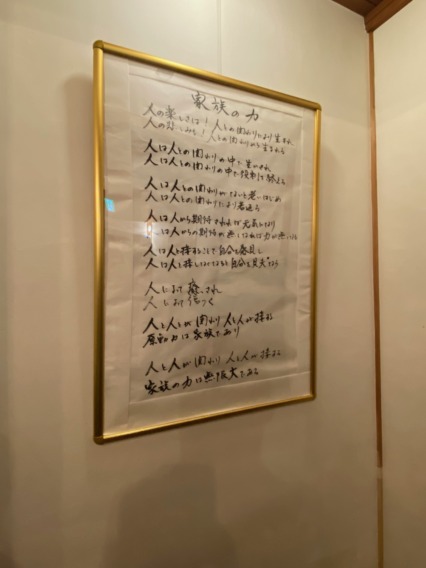 家族の力
人の楽しさは！人との関わりにより生まれ
人の悲しみも！人との関わりから生まれる
人は人との関わりの中で生かされ
人は人との関わりの中で役割を
人は人との関わりがないと老いはじめ
人は人との関わりにより若返る
人は人から期待されれば元気になり
人は人からの期待が無くなれば力が無くなる
人は人と接することで自分を発見し
人は人と接しなくなると自分を見失なう
人によって癒され
人によって傷つく
人と人とが関わり人と人が接する
原動力は家族であり
人と人が関わり人と人が接する
家族の力は無限大である